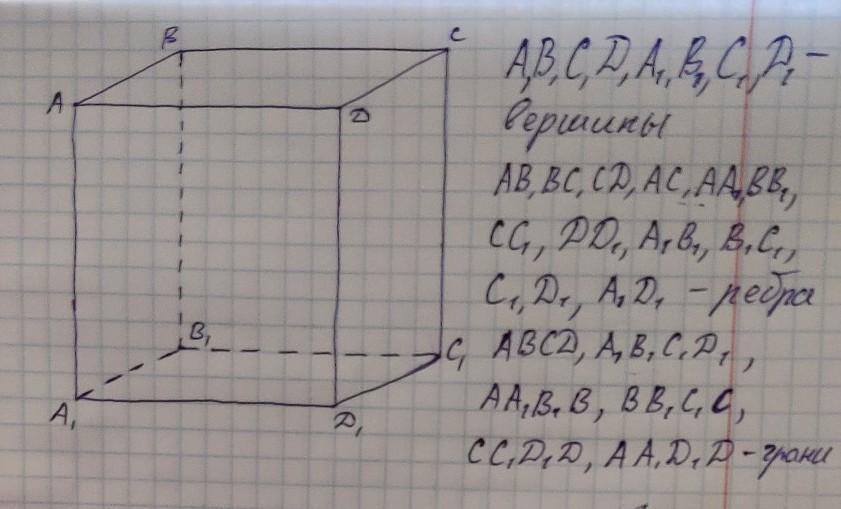 B
C
A
D
B₁
C₁
A₁
D₁
A, B, C, D, A₁, B₁, C₁, D₁ –
вершины
AB, BC, CD, AC, AA₁, BB₁,
CC₁, DD₁, A₁B₁, B₁C₁,
C₁, D₁, A₁D₁ – ребра
ABCD, A₁B₁C₁D₁,
AA₁B₁B, BB₁C₁C,
CC₁D₁D, AA₁D₁D – грани